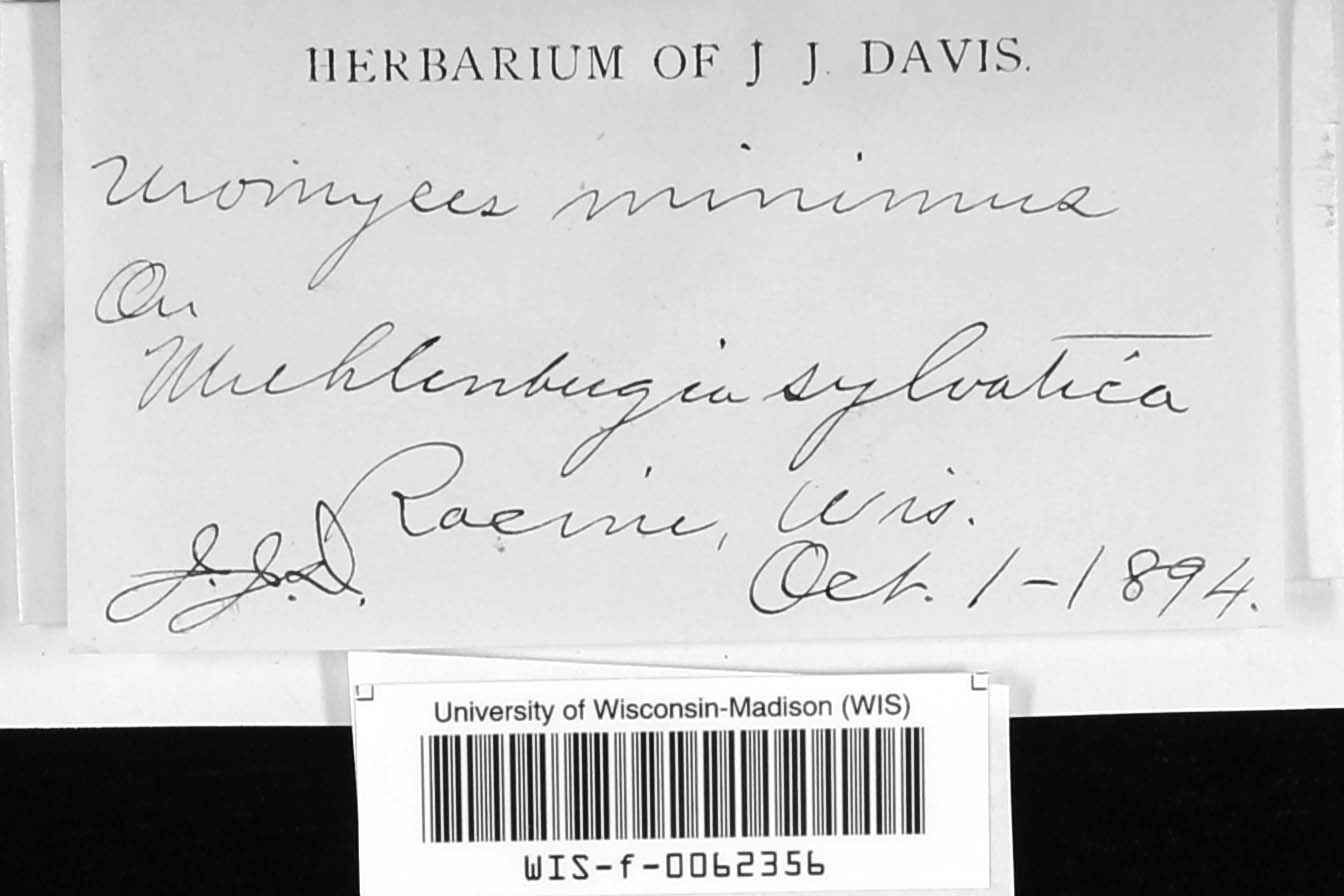 HERBARIUM OF J J. DAVIS.
Uromyces minimus
On
Muehlenbergia sylvatica
Racine, Wis.
J.J.D.
Oct. 1-1894.
University of Wisconsin-Madison (WIS)
WIS-f-0062356